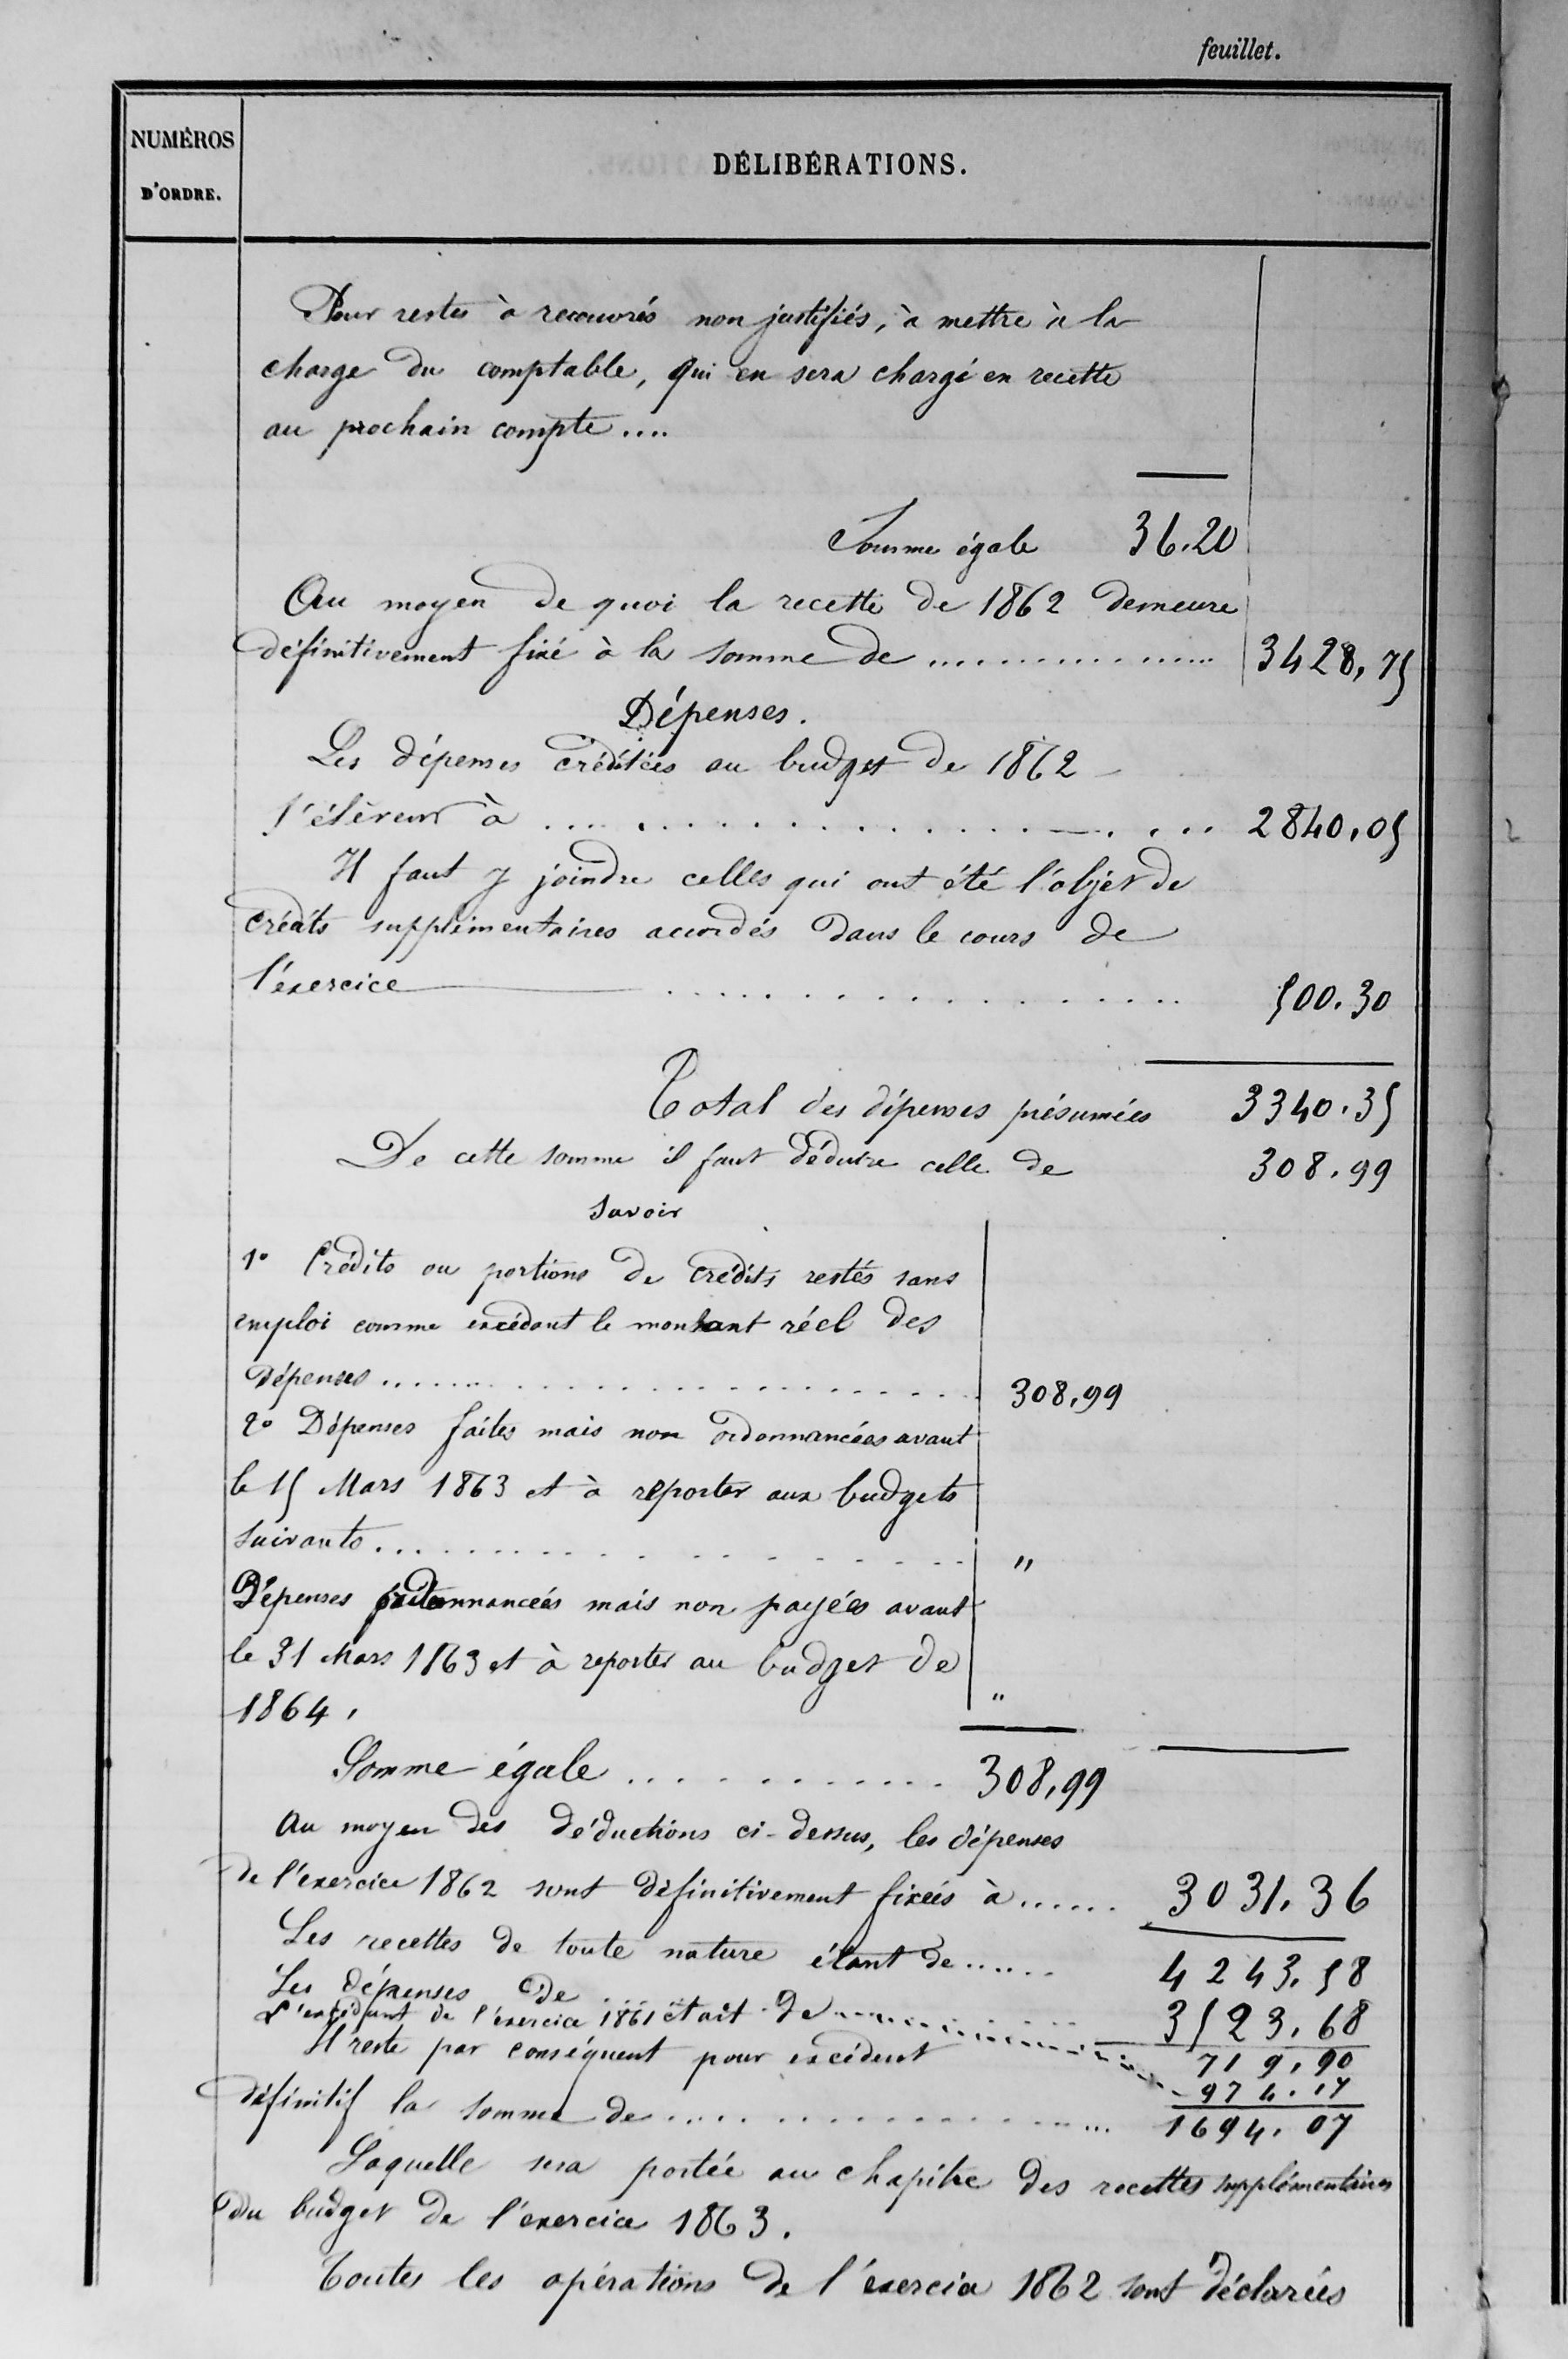 feuillet.
NUMÉROS
D'ORDRE.
DÉLIBÉRATIONS.
Pour restes à recouvrés non justifiés, à mettre à la
charge du comptable, qui en sera chargé en recette
au prochain compte....
Somme égale 36.20
Au moyen de quoi la recette de 1862 demeure
définitivement fixé à la somme de ................ 3428,75
Dépenses.
Les dépenses créditées au budget de 1862
s'élèvent à ................ 2840,05
Il faut y joindre celles qui ont été l'objet de
crédits supplémentaires accordés dans le cours de
l'exercice ................ 500.30
Total des dépenses présumées 3340.35
De cette somme il faut déduire celle de 308.99
savoir
1° Crédits ou portions de crédits restés sans
emploi comme excédant le montant réel des
dépenses ................ 308,99
2° Dépenses faites mais non ordonnancées avant
le 15 Mars 1863 et à reporter aux budgets
suivants ................ "
Dépenses ordonnancées mais non payées avant
le 31 Mars 1863 et à reporter au budget de
1864, "
Somme égale ............ 308,99
Au moyen des déductions ci-dessus, les dépenses
de l'exercice 1862 sont définitivement fixées à ...... 3031.36
Les recettes de toute nature étant de ...... 4243.58
Les dépenses de ...... 3523.68
719,90
L'excédant de l'exercice 1861 était de ................ 974.17
Il reste par conséquent pour excédent
définitif la somme de ................ 1694.07
Laquelle sera portée au chapitre des recettes supplémentaires
du budget de l'exercice 1863.
Toutes les opérations de l'exercice 1862 sont déclarées